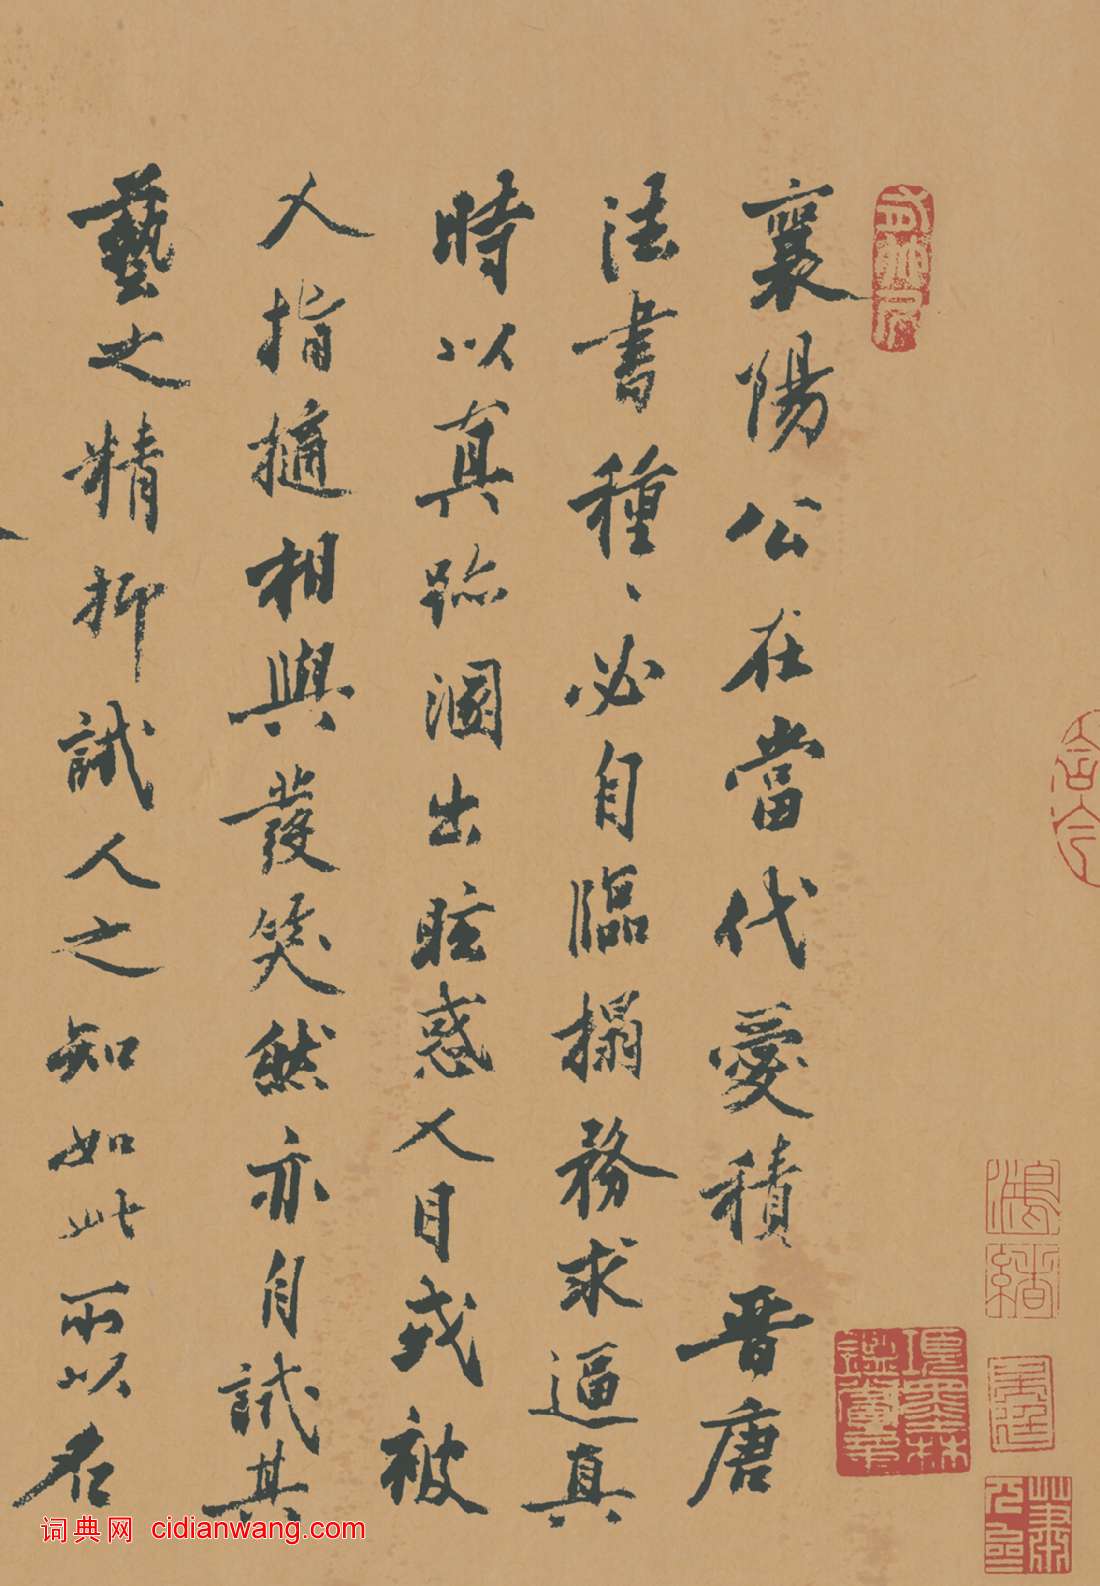 襄陽公在當代愛積晉唐
法書種、必自臨搨務求逼真
時以真跡溷出眩惑人目或被
人指擿相與發笑然亦自試其
藝之精抑試人之知如此所以名
項墨林鑑賞章
詞典网 cidianwang.com